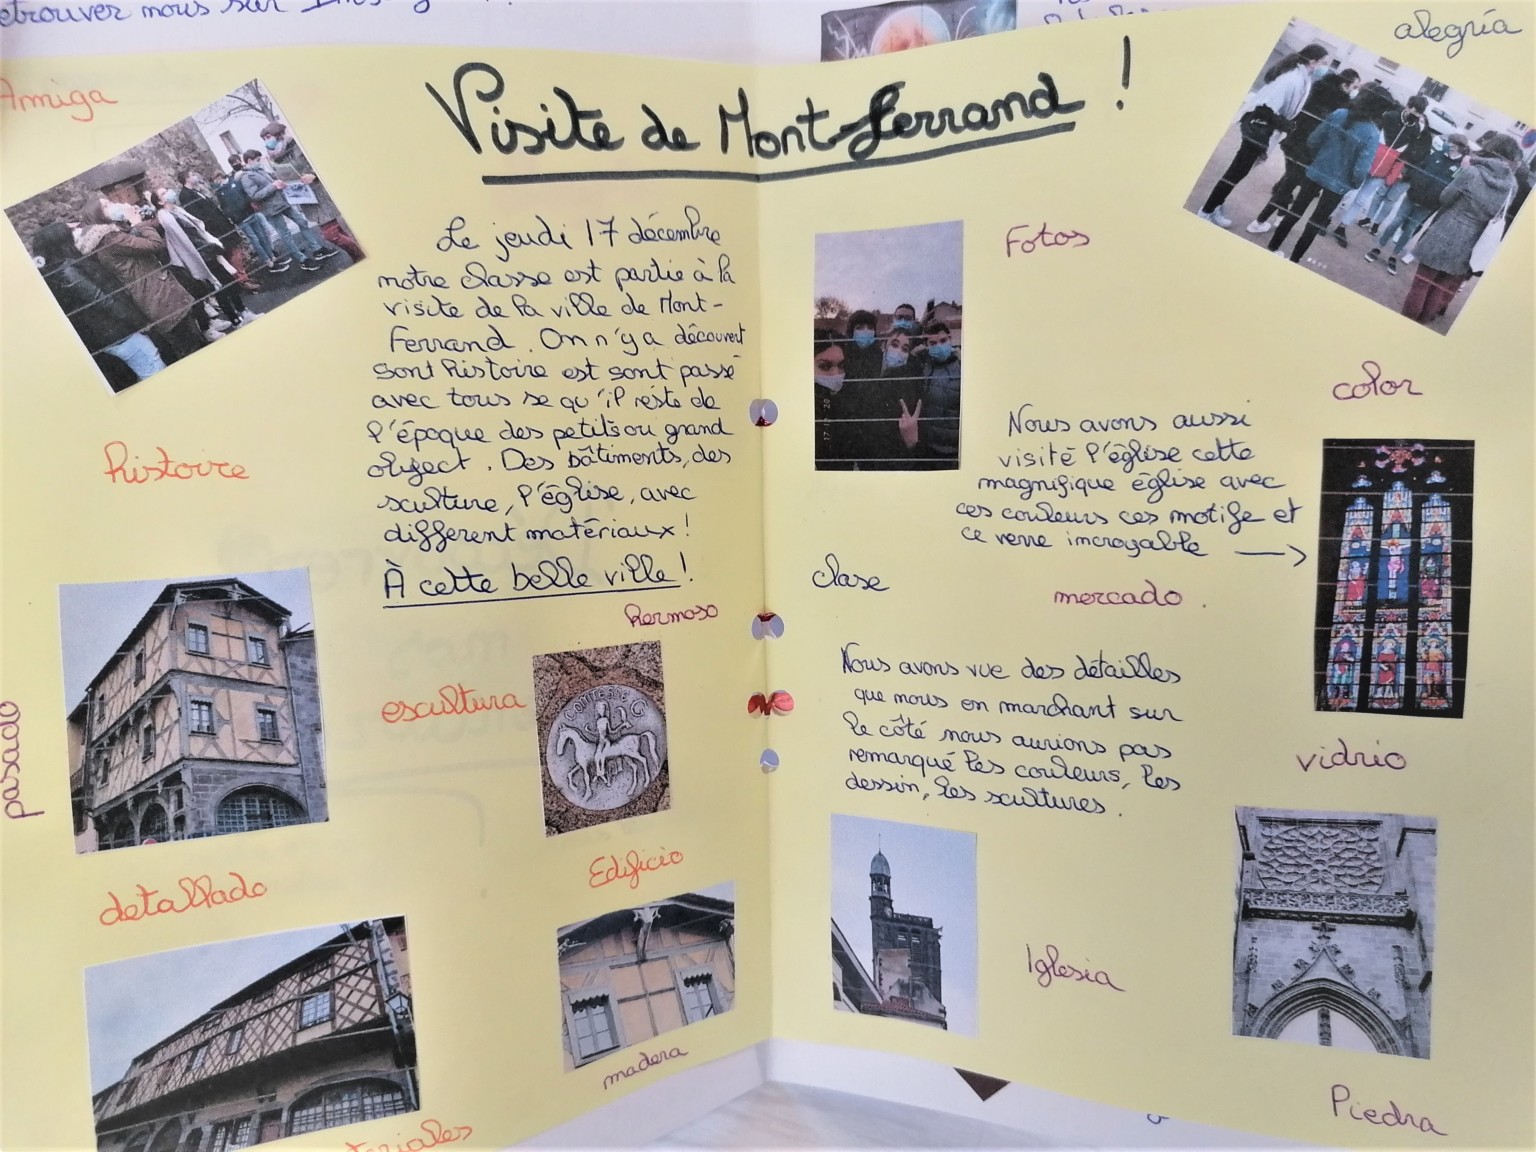 etrouver nous sur
Amiga
alegría
Visite de Mont-Ferrand !
Le jeudi 17 décembre
notre classe est partie à la
visite de la ville de Mont-
Ferrand. On n'y a découvert
sont histoire est sont passé
avec tous se qu'il reste de
l'époque des petits ou grand
object. Des bâtiments, des
sculture, l'église, avec
different matériaux !
À cette belle ville !
histoire
hermoso
escultura
COMTESSE G
pasado
detallado
Edificio
madera
teriales
Fotos
color
Nous avons aussi
visité l'église cette
magnifique église avec
ces couleurs ces motife et
ce verre incroyable →
clase
mercado
Nous avons vue des détailles
que nous en marchant sur
le côté nous aurions pas
remarqué les couleurs, les
dessin, les scultures.
vidrio
Iglesia
Piedra